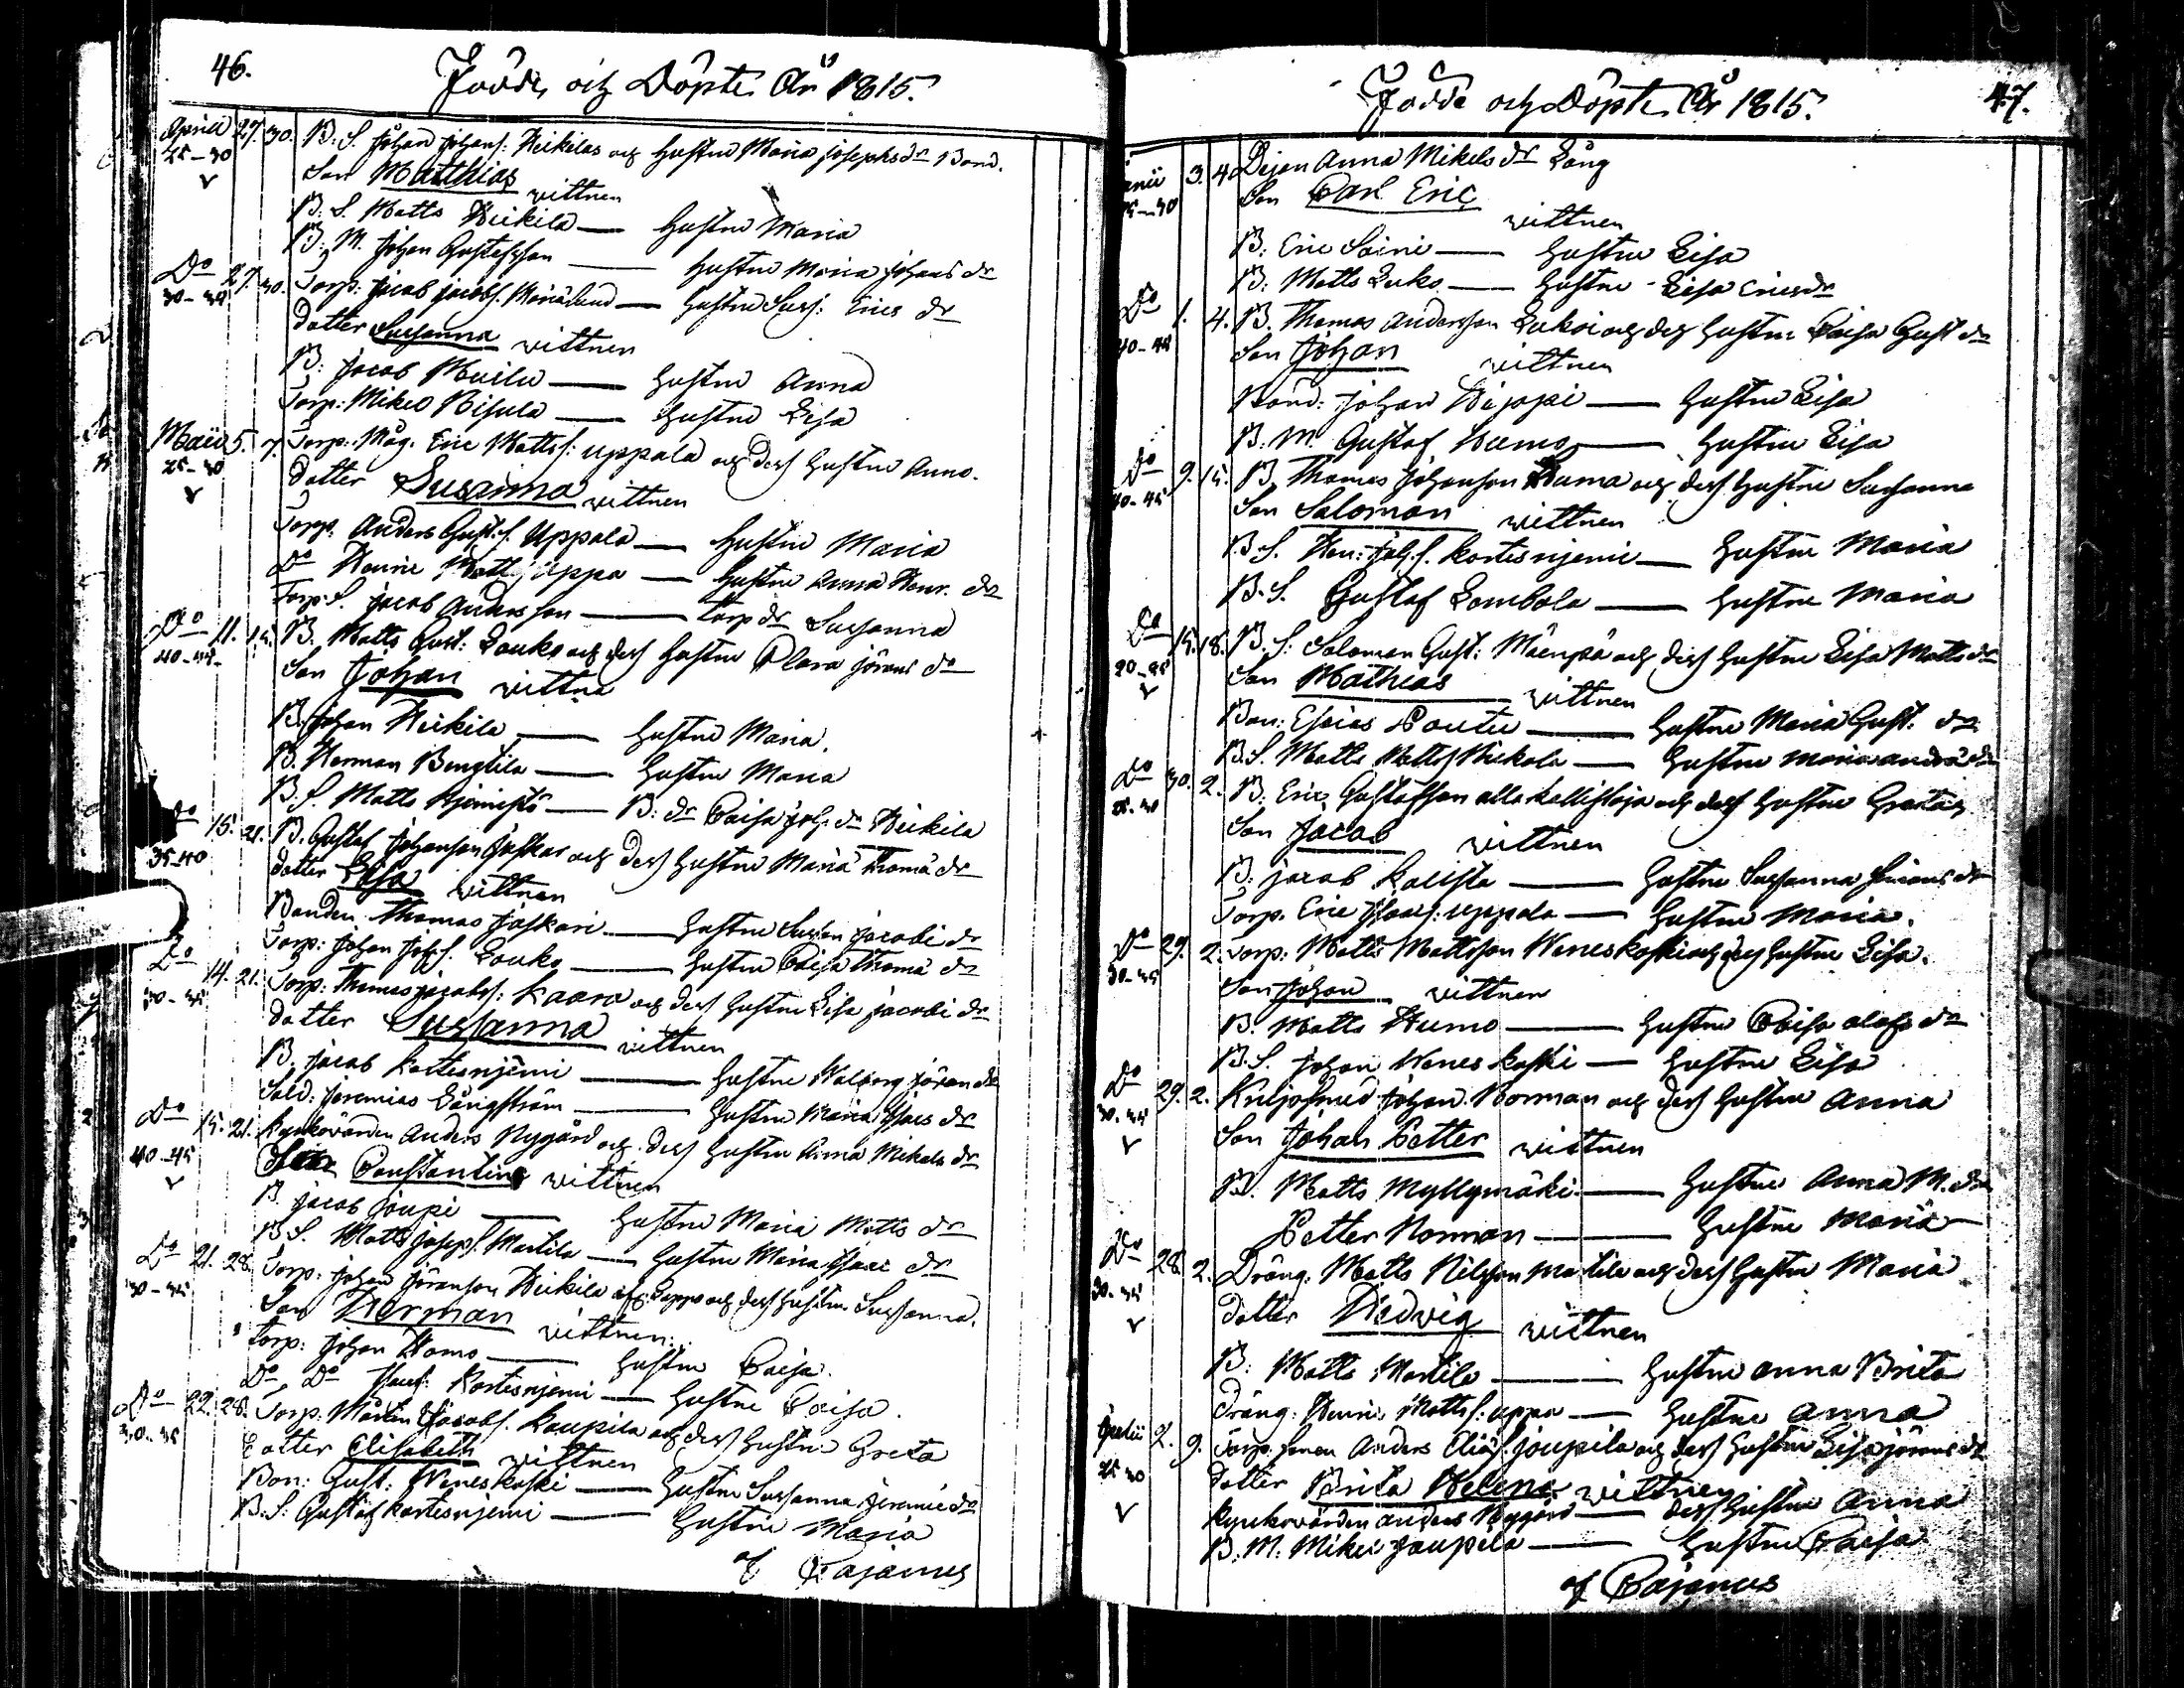 46.
Födde och Döpte År 1815.
Aprill 27. 30. B: S. Johan Johans: Heikilas och hustru Maria Josephs dr Bond.
25-30 Son Matthias vittnen
B: S. Matts Heikila — hustru Maria
B: M. Johan Gustafsson — hustru Maria Johans dr
Do 27. 30. Torp: Jacob Jacobs. — hustru Sus: Erics dr
30-35 dotter Susanna vittnen
B: Jacob — hustru Anna
Torp: Mikel — hustru Lisa
Maii 5. 7. Torp: Måg. Eric Mattss: Uppala och dess hustru Anna.
25-30 dotter Susanna vittnen
Torp: Anders Gust. S. Uppala — hustru Maria
Do Henric Matts Uppa — hustru Anna Henr. dr
Torp. S. Jacob Andersson — Torp dr Susanna
Do 11. 14. B. Matts Gust: Louko och dess hustru Clara Jörans dr
40-45 Son Johan vittne
B. Johan Heikila — hustru Maria.
B. Herman Bengtila — hustru Maria
B. S. Matts — B: dr Caisa Joh. dr Heikila
Do 15. 21. B. Gustaf Johansson Jaskar och dess hustru Maria Thoma dr
35-40 dotter Lisa vittnen
Bonden Thomas Jaskari — hustru Susan Jacobi dr
Torp: Johan Johs S. Louko — hustru Caisa Thoma dr
Do 14. 21. Torp: Thomas Jacobss: Kaaro och dess hustru Lisa Jacobi dr
30-35 dotter Susanna vittnen
B. Jacob Kortesnjemi — hustru Walborg Jöran dr
Sold: Jeremias Långström — hustru Maria Isacs dr
Do 15. 21. Kyrkovärden Anders Nygård och dess hustru Anna Mikels dr
40-45 Constantin vittnen
B. Jacob Joupi — hustru Maria Matts dr
B. S. Matts Joseps. Martila — hustru Maria Isaac dr
Do 21. 28. Torp: Johan Jöransson Heikila och dess hustru Susanna.
30-35 Son Herman vittnen:
Torp: Johan Homo — hustru Caisa.
Do Do Kortesnjemi — hustru Caisa.
Do 22. 28. Torp: Mårten Jacobs. Kaupila och dess hustru Greta
30-35 dotter Elisabeth vittnen
Bon: Gust: Weneskoski — hustru Susanna Jeremie dr
B: S: Gustaf Kortesnjemi — hustru Maria
af Cajanus
47.
Födde och Döpte År 1815.
Junii 3. 4. Pijan Anna Mikels dr Lång
25-30 Son Carl Eric vittnen
B: Eric Soini — hustru Lisa
B: Matts Luko — hustru Lisa Erics dr
Do 1. 4. B. Thomas Andersson Lukoi och dess hustru Caisa Gust dr
40-45 Son Johan vittnen
Bond: Johan Hippi — hustru Lisa
B. M. Gustaf Humo — hustru Lisa
Do 9. 15. B. Thomas Johansson Huma och dess hustru Susanna
40-45 Son Salomon vittnen
B. S. Hen: Joh. S. Kortesnjemi — hustru Maria
B. S. Gustaf Lombola — hustru Maria
Do 15. 18. B. S: Salomon Gust: Mäenpä och dess hustru Lisa Matts dr
20-25 Son Mathias vittnen
Bon: Esaias Poutu — hustru Maria Gust. dr
B. S. Matts Mattss Nickola — hustru Maria Andrs dr
Do 30. 2. B: Eric Gustafsson Kallistoja och dess hustru Greta
25-30 Son Jacob vittnen
B: Jacob Kalista — hustru Susanna Simons dr
Torp. Eric Isacs: Uppala — hustru Maria.
Do 29. 2. Torp: Matts Mattsson Weneskoski och dess hustru Lisa.
30-35 Son Johan vittnen
B. Matts Humo — hustru Caisa Olofs dr
B. S. Johan Weneskoski — hustru Lisa
Do 29. 2. Johan Norman och dess hustru Anna
30-35 Son Johan Petter vittnen
B. Matts Myllymäki — hustru Anna M. dr
Petter Norman — hustru Maria
Do 28. 2. Dräng. Matts Nilsson Martila och dess hustru Maria
30-35 dotter Hedvig vittnen
B: Matts Martila — hustru Anna Brita
Dräng: Henric Mattss: Uppa — hustru Anna
Julii 2. 9. Torp. Anders Elias S. Joupila och dess hustru Lisa Jörans dr
25-30 dotter Brita Helena vittnen
Kyrkovärden Anders Nygård — dess hustru Anna
B. M: Mikel Joupila — hustru Caisa
af Cajanus